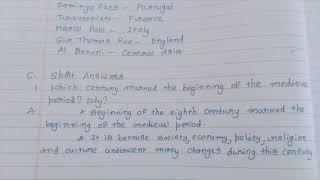 Domingo Paes - Portugal
Taravernier - France
Marco Polo - Italy
Sir Thomas Roe - England
Al Beruni - Central Asia
C. Short Answers
1. Which century marked the beginning of the medieval
period? Why?
A. * Beginning of the eighth century marked the
beginning of the medieval period.
* It is because society, economy, polity, religion
and culture underwent many changes during this century